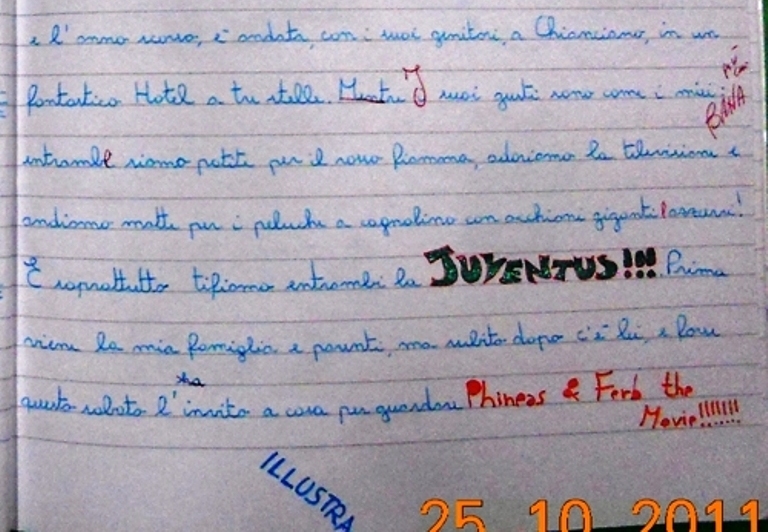 e l'anno scorso, è andata, con i suoi genitori, a Chianciano, in un
fantastico Hotel a tre stelle. Mentre I suoi gusti sono come i miei:
BANA
entrambe siamo patite per il rosso fiamma, adoriamo la televisione e
andiamo matte per i peluche a cagnolino con occhioni giganti e azzurri!
E soprattutto tifiamo entrambi la JUVENTUS!!! Prima
viene la mia famiglia e parenti, ma subito dopo c'è lei, e forse
questo sabato l' invito a casa per guardare Phineas & Ferb the
Movie!!!!!!!
ILLUSTRA
25 10 2011